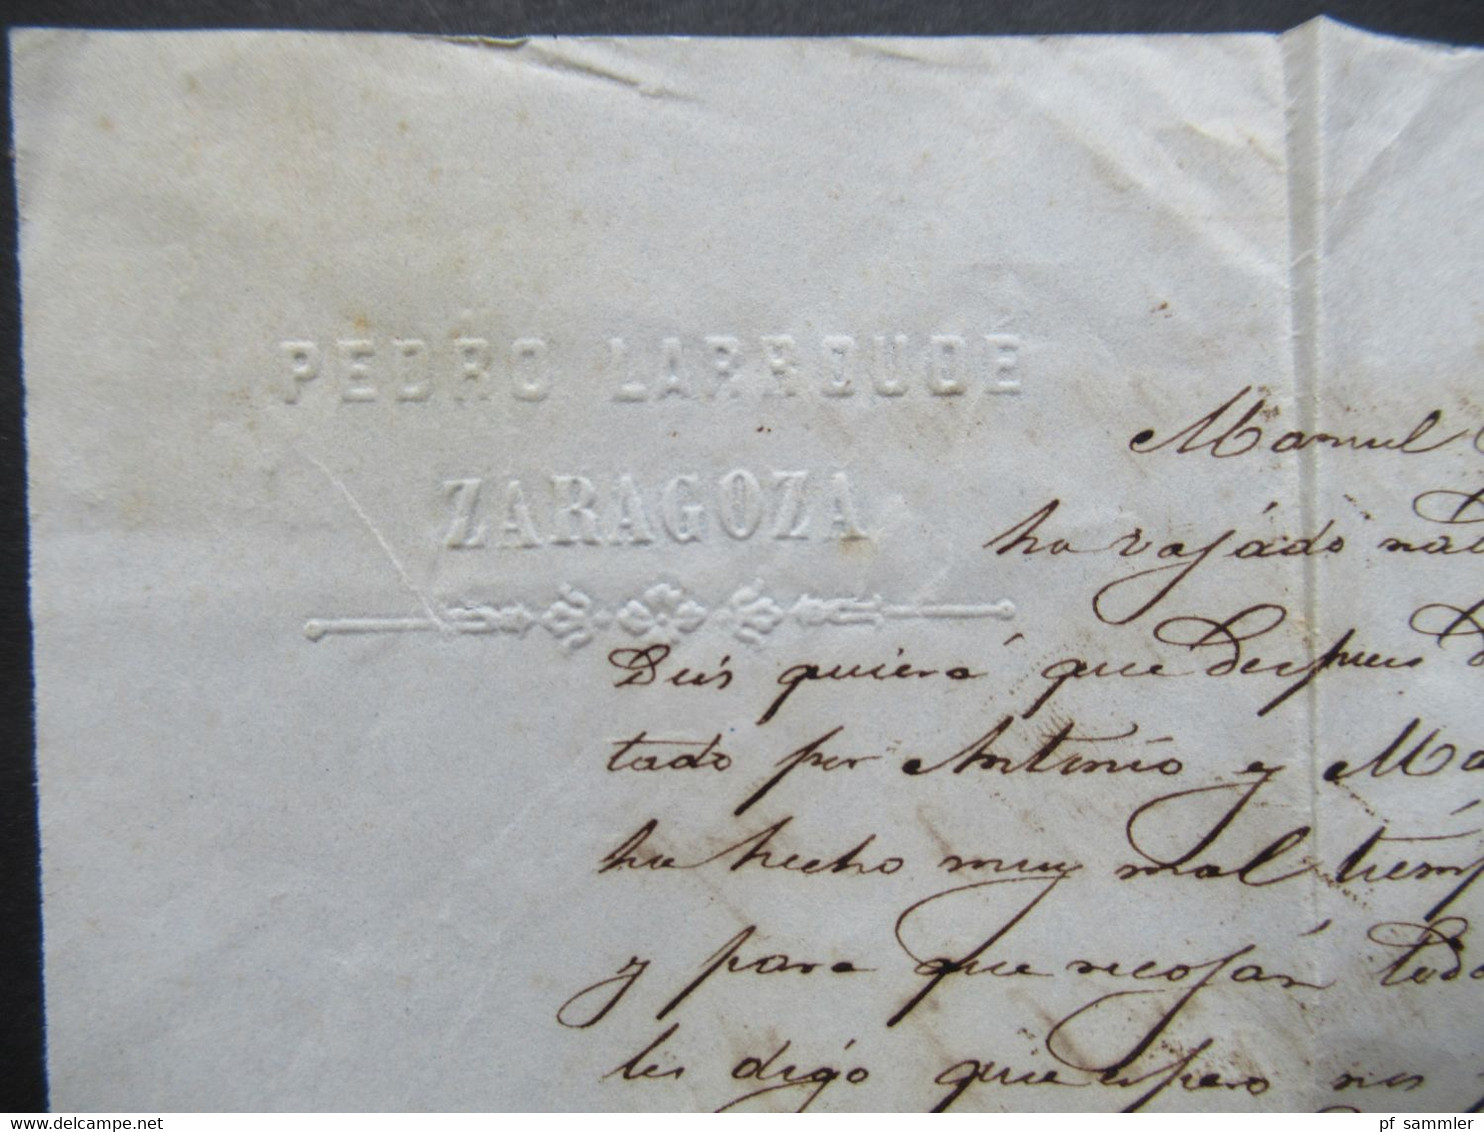 PEDRO LARROUDÉ
ZARAGOZA
Manuel
ha vajádo
Diós quierá que Despues
tado por Antonio y Ma
ha hecho muy mal tiemp
y para que recoján todo
les digo que espero nos
delcampe.net
pf_sammler